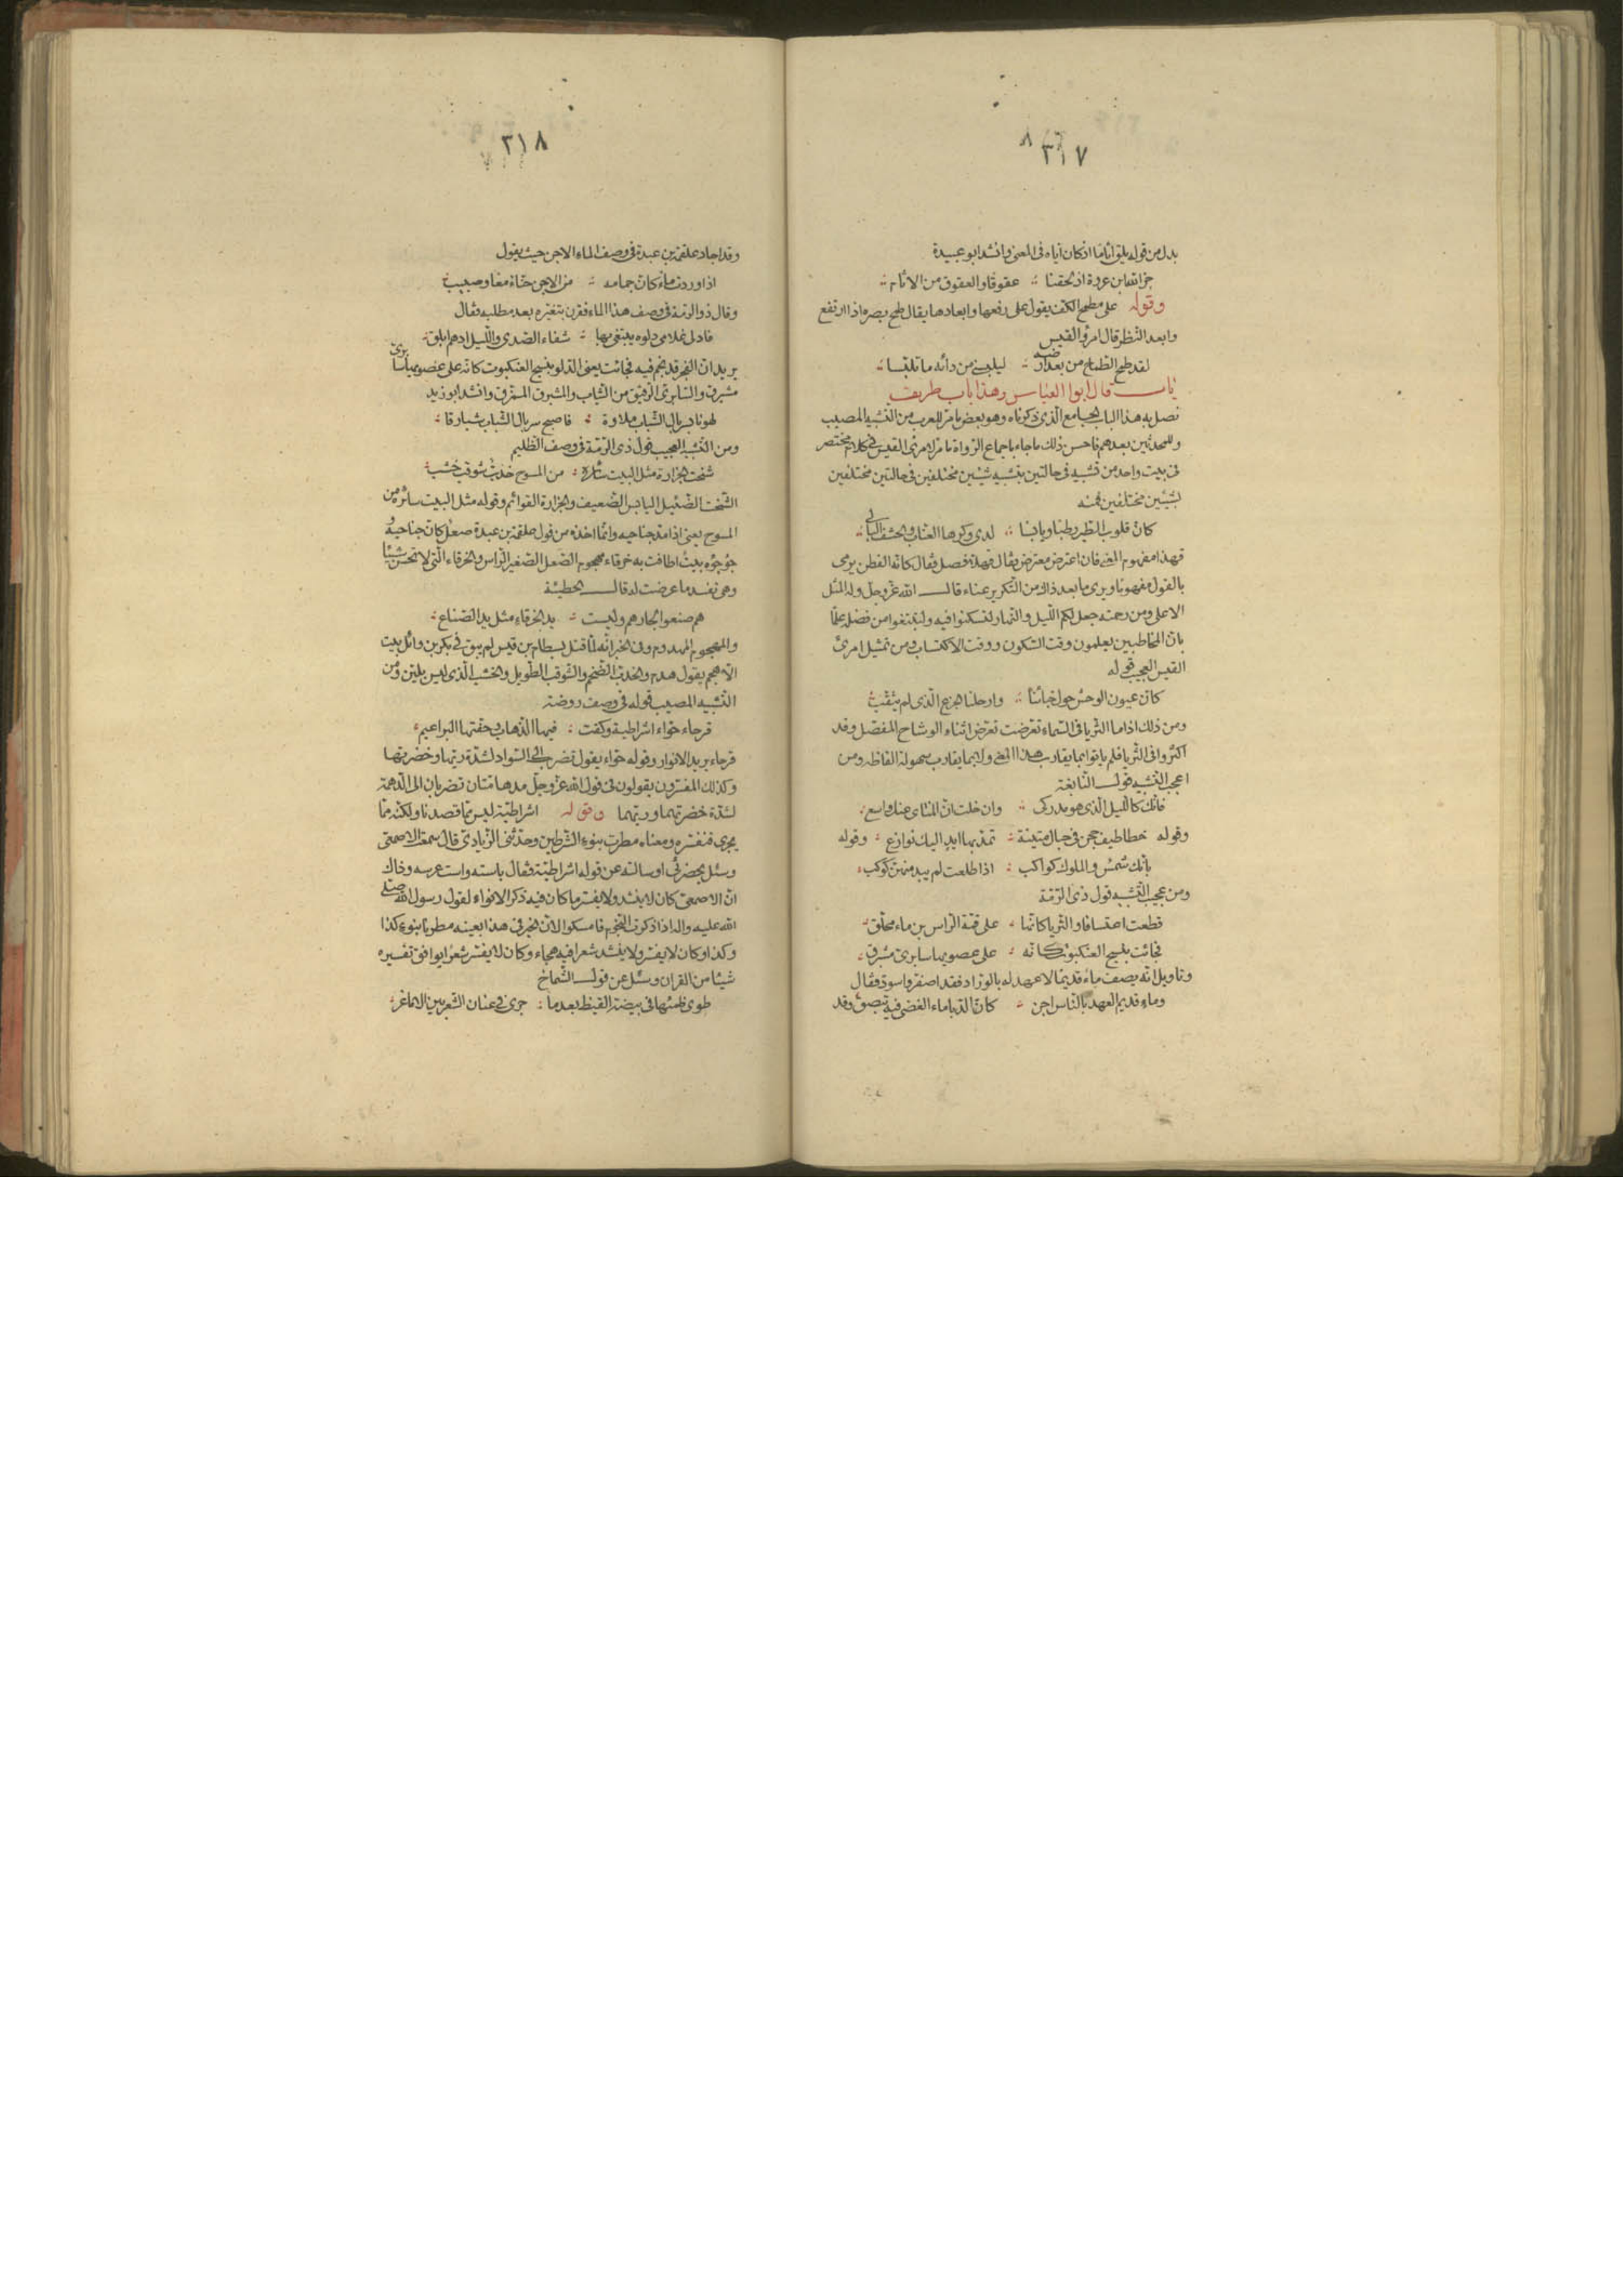 ٣١٧
بدل من قوله يلق اثاما اذ كان اياه فى المعنى وانشد ابو عبيدة
جزى الله ابن عروة اذ لحقنا عقوقا والعقوق من الاثام
وقوله على مطمح الكف يقول على رفعها وابعادها يقال طمح بصره اذا ارتفع
وابعد النظر قال امرؤ القيس
لقد طمح الطماح من بعد ارضه ليلبسنى من دائه ما تلبسا
باب قال ابو العباس وهذا باب طريف
نصل به هذا الباب الجامع الذى ذكرناه وهو بعض ما مر للعرب من التشبيه المصيب
وللمحدثين بعدهم فاحسن ذلك ما جاء باجماع الرواة ما مر لامرئ القيس فى كلام مختصر
فى بيت واحد من تشبيه فى حالتين بتشبيه شيئين مختلفين فى حالتين مختلفين
بشيئين مختلفين فمنه
كان قلوب الطير رطبا ويابسا لدى وكرها العناب والحشف البالى
فهذا مفهوم المعنى فان اعترض معترض فقال فهلا فصل فقال كانه الفطن يرمى
بالقول مفهوما ويرى ما بعد ذلك من التكرير عناء قال الله عز وجل وله المثل
الاعلى ومن رحمته جعل لكم الليل والنهار لتسكنوا فيه ولتبتغوا من فضله علما
بان المخاطبين يعلمون وقت السكون ووقت الاكتساب ومن تمثيل امرئ
القيس العجيب قوله
كان عيون الوحش حول خبائنا وارحلنا الجزع الذى لم يثقب
ومن ذلك اذا ما الثريا فى السماء تعرضت تعرض اثناء الوشاح المفصل وقد
اكثروا فى الثريا فلم ياتوا بما يقارب هذا المعنى ولا بما يقارب سهولة الفاظه ومن
اعجب التشبيه قول النابغة
فانك كالليل الذى هو مدركى وان خلت ان المنتاى عنك واسع
وقوله خطاطيف حجن فى حبال متينة تمد بها ايد اليك نوازع وقوله
بانك شمس والملوك كواكب اذا طلعت لم يبد منهن كوكب
ومن عجيب التشبيه قول ذى الرمة
قطعت اعتسافا والثريا كانها على قمة الراس بن ماء محلق
فجائت بنسج العنكبوت كانه على عصويها سابرى مشبرق
وتاويل انه يصف ماء قديما لا عهد له بالوراد فقد اصفر واسود فقال
وماء قديم العهد بالناس اجن كان الدبا ماء الغضى فيه تبصق وقد
٣١٨
وقد اجاد علقمة بن عبدة فى وصف الماء الاجن حيث يقول
اذا وردت ماء كان جمامه من الاجن حناء معا وصبيب
وقال ذو الرمة فى وصف هذا الماء فقرن بتغيره بعد مطلبه فقال
فادلى غلامى دلوه يبتغى بها شفاء الصدى والليل ادهم ابلق
يريد ان الفجر قد نجم فيه فجائت يعنى الدلو بنسج العنكبوت كانه على عصويها سابرى
مشبرق والسابرى الرقيق من الثياب والمشبرق الممزق وانشد ابو زيد
لهونا بسربال الشباب ملاوة فاصبح سربال الشباب شبارقا
ومن التشبيه العجيب قول ذى الرمة فى وصف الظليم
شخت الجزارة مثل البيت سائره من المسوح خدب شوقب خشب
الشخت الضئيل اليابس الضعيف والجزارة القوائم وقوله مثل البيت سائره من
المسوح يعنى اذا مد جناحيه وانما اخذه من قول علقمة بن عبدة صعل كان جناحيه و
جؤجؤه بيت اطافت به خرقاء مهجوم الصعل الصغير الراس والخرقاء التى لا تحسن شيئا
وهى تفسد ما عرضت له قال الحطيئة
هم صنعوا لجارهم وليست يد الخرقاء مثل يد الصناع
والمهجوم المهدوم وفى الخبر انه لما قتل بسطام بن قيس لم يبق فى بكر بن وائل بيت
الا هجم يقول هدم والخدب الضخم والشوقب الطويل والخشب الذى ليس بلين ومن
التشبيه المصيب قوله فى وصف روضة
قرحاء حواء اشراطية وكفت فيها الذهاب وحفتها البراعيم
قرحاء يريد الانوار وقوله حواء يقول تضرب الى السواد لشدة ريها وخضرتها
وكذلك المفسرون يقولون فى قول الله عز وجل مدهامتان تضربان الى الدهمة
لشدة خضرتهما وريهما وقوله اشراطية ليس مما قصدنا ولكنه مما
يجرى فنفسره ومعناه مطرت بنوء الشرطين وحدثنى الزيادى قال سمعت الاصمعى
وسئل بحضرتى او سالته عن قوله اشراطية فقال باسته واست عرسه وذاك
ان الاصمعى كان لا ينشد ولا يفسر ما كان فيه ذكر الانواء لقول رسول الله صلى
الله عليه واله اذا ذكرت النجوم فامسكوا لان الخبر فى هذا بعينه مطرنا بنوء كذا
وكذا وكان لا يفسر ولا ينشد شعرا فيه هجاء وكان لا يفسر شعرا يوافق تفسيره
شيئا من القران وسئل عن قول الشماخ
طوى ظمئها فى بيضة القيظ بعد ما جرى فى عنان الشعريين الاماعز